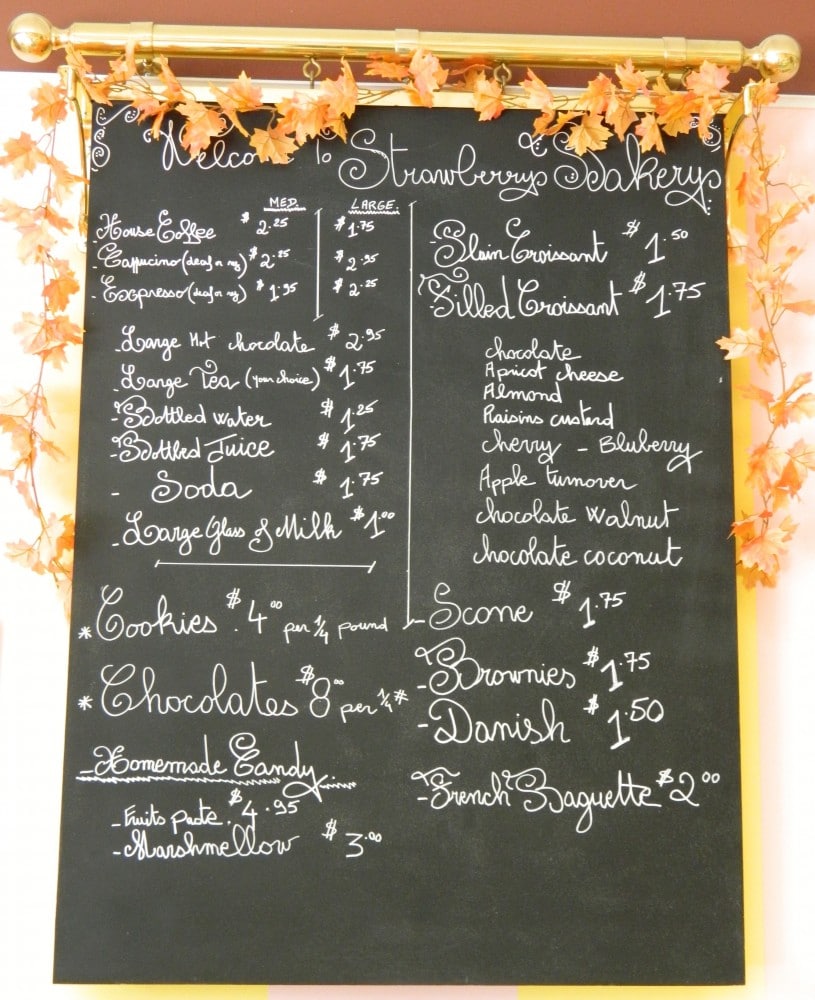 Welcome To Strawberrys Bakery
MED. LARGE.
- House Coffee $2.25 $1.75
- Cappucino (decaf or reg) $2.25 $2.95
- Exspresso (decaf or reg) $1.95 $2.25
- Large Hot chocolate $2.95
- Large Tea (your choice) $1.75
- Bottled water $1.25
- Bottled Juice $1.75
- Soda $1.75
- Large Glass of Milk $1.00
* Cookies $4.00 per 1/4 pound
* Chocolates $8.00 per 1/4 #
- Homemade Candy
- Fruits paste $4.95
- Marshmellow $3.00
- Plain Croissant $1.50
- Filled Croissant $1.75
chocolate
Apricot cheese
Almond
Raisins custard
cherry - Bluberry
Apple turnover
chocolate walnut
chocolate coconut
- Scone $1.75
- Brownies $1.75
- Danish $1.50
- French Baguette $2.00